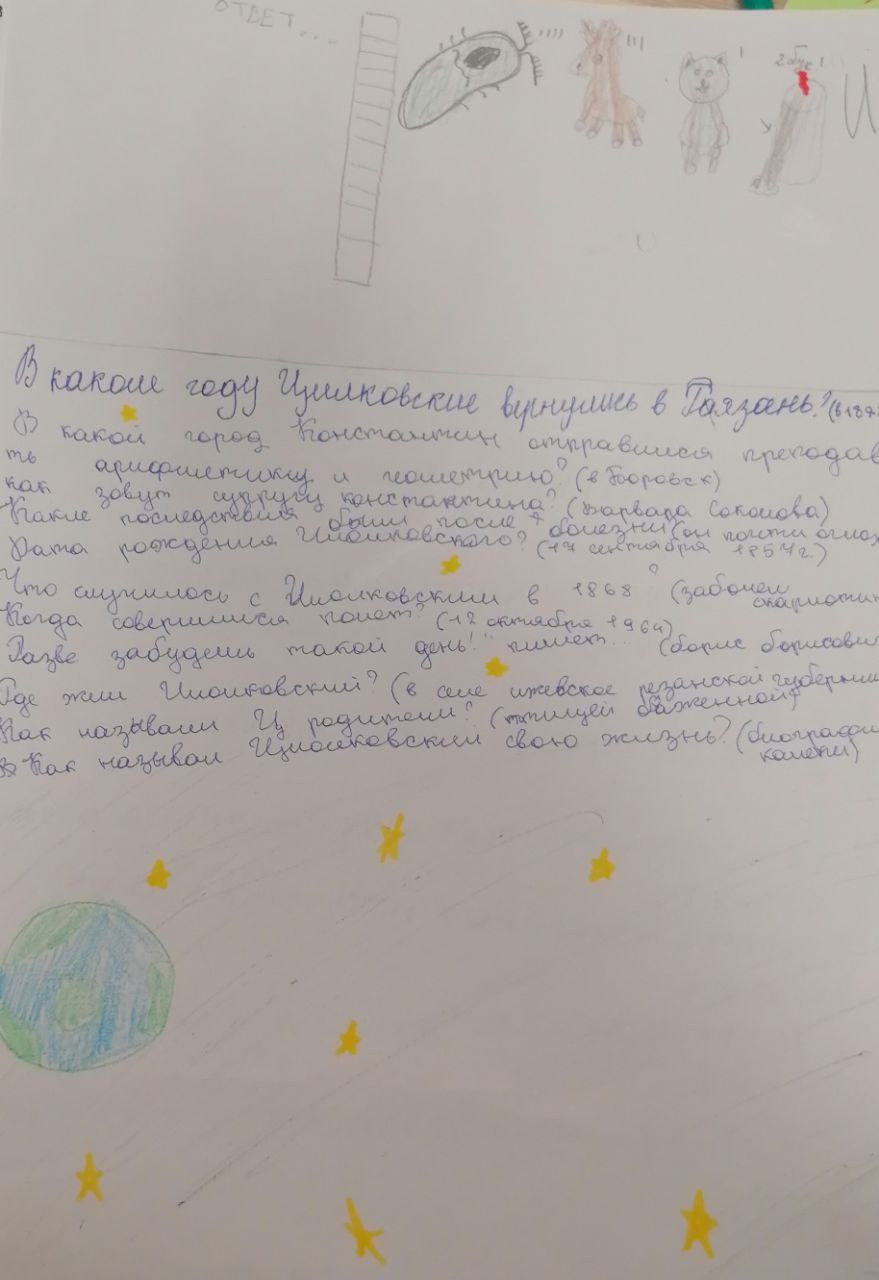 ОТВЕТ...
2 бук !
В каком году Циолковские вернулись в Рязань? (в 187
В какой город Константин отправился преподав
ть арифметику и геометрию? (в Боровск)
как зовут супругу константина? (Варвара Соколова)
Какие последствия были после болезни? (он почти оглох
Дата рождения Циолковского? (17 сентября 1857г.)
Что случилось с Циолковским в 1868? (заболел скарлатин
Когда совершился полет? (12 октября 1964)
Разве забудешь такой день!" пишет... (борис борисович
Где жил Циолковский? (в селе ижевское резанской губернии
Как называли Ц родители? (птицей блаженной)
Как называл Циолковский свою жизнь? (биографи
калеки)